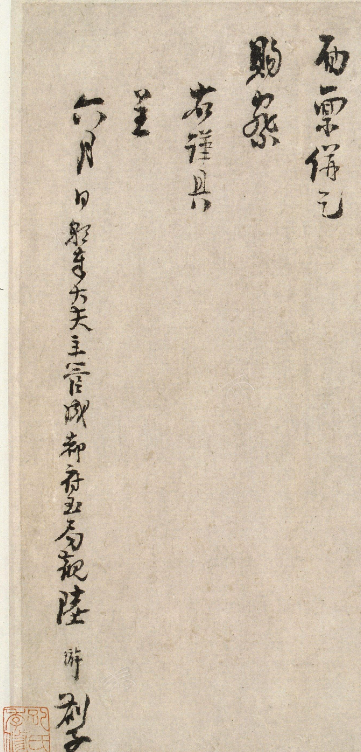 面禀併乞
賜察
右謹具
呈
六月日朝奉大夫主管成都府玉局觀陸游劄子